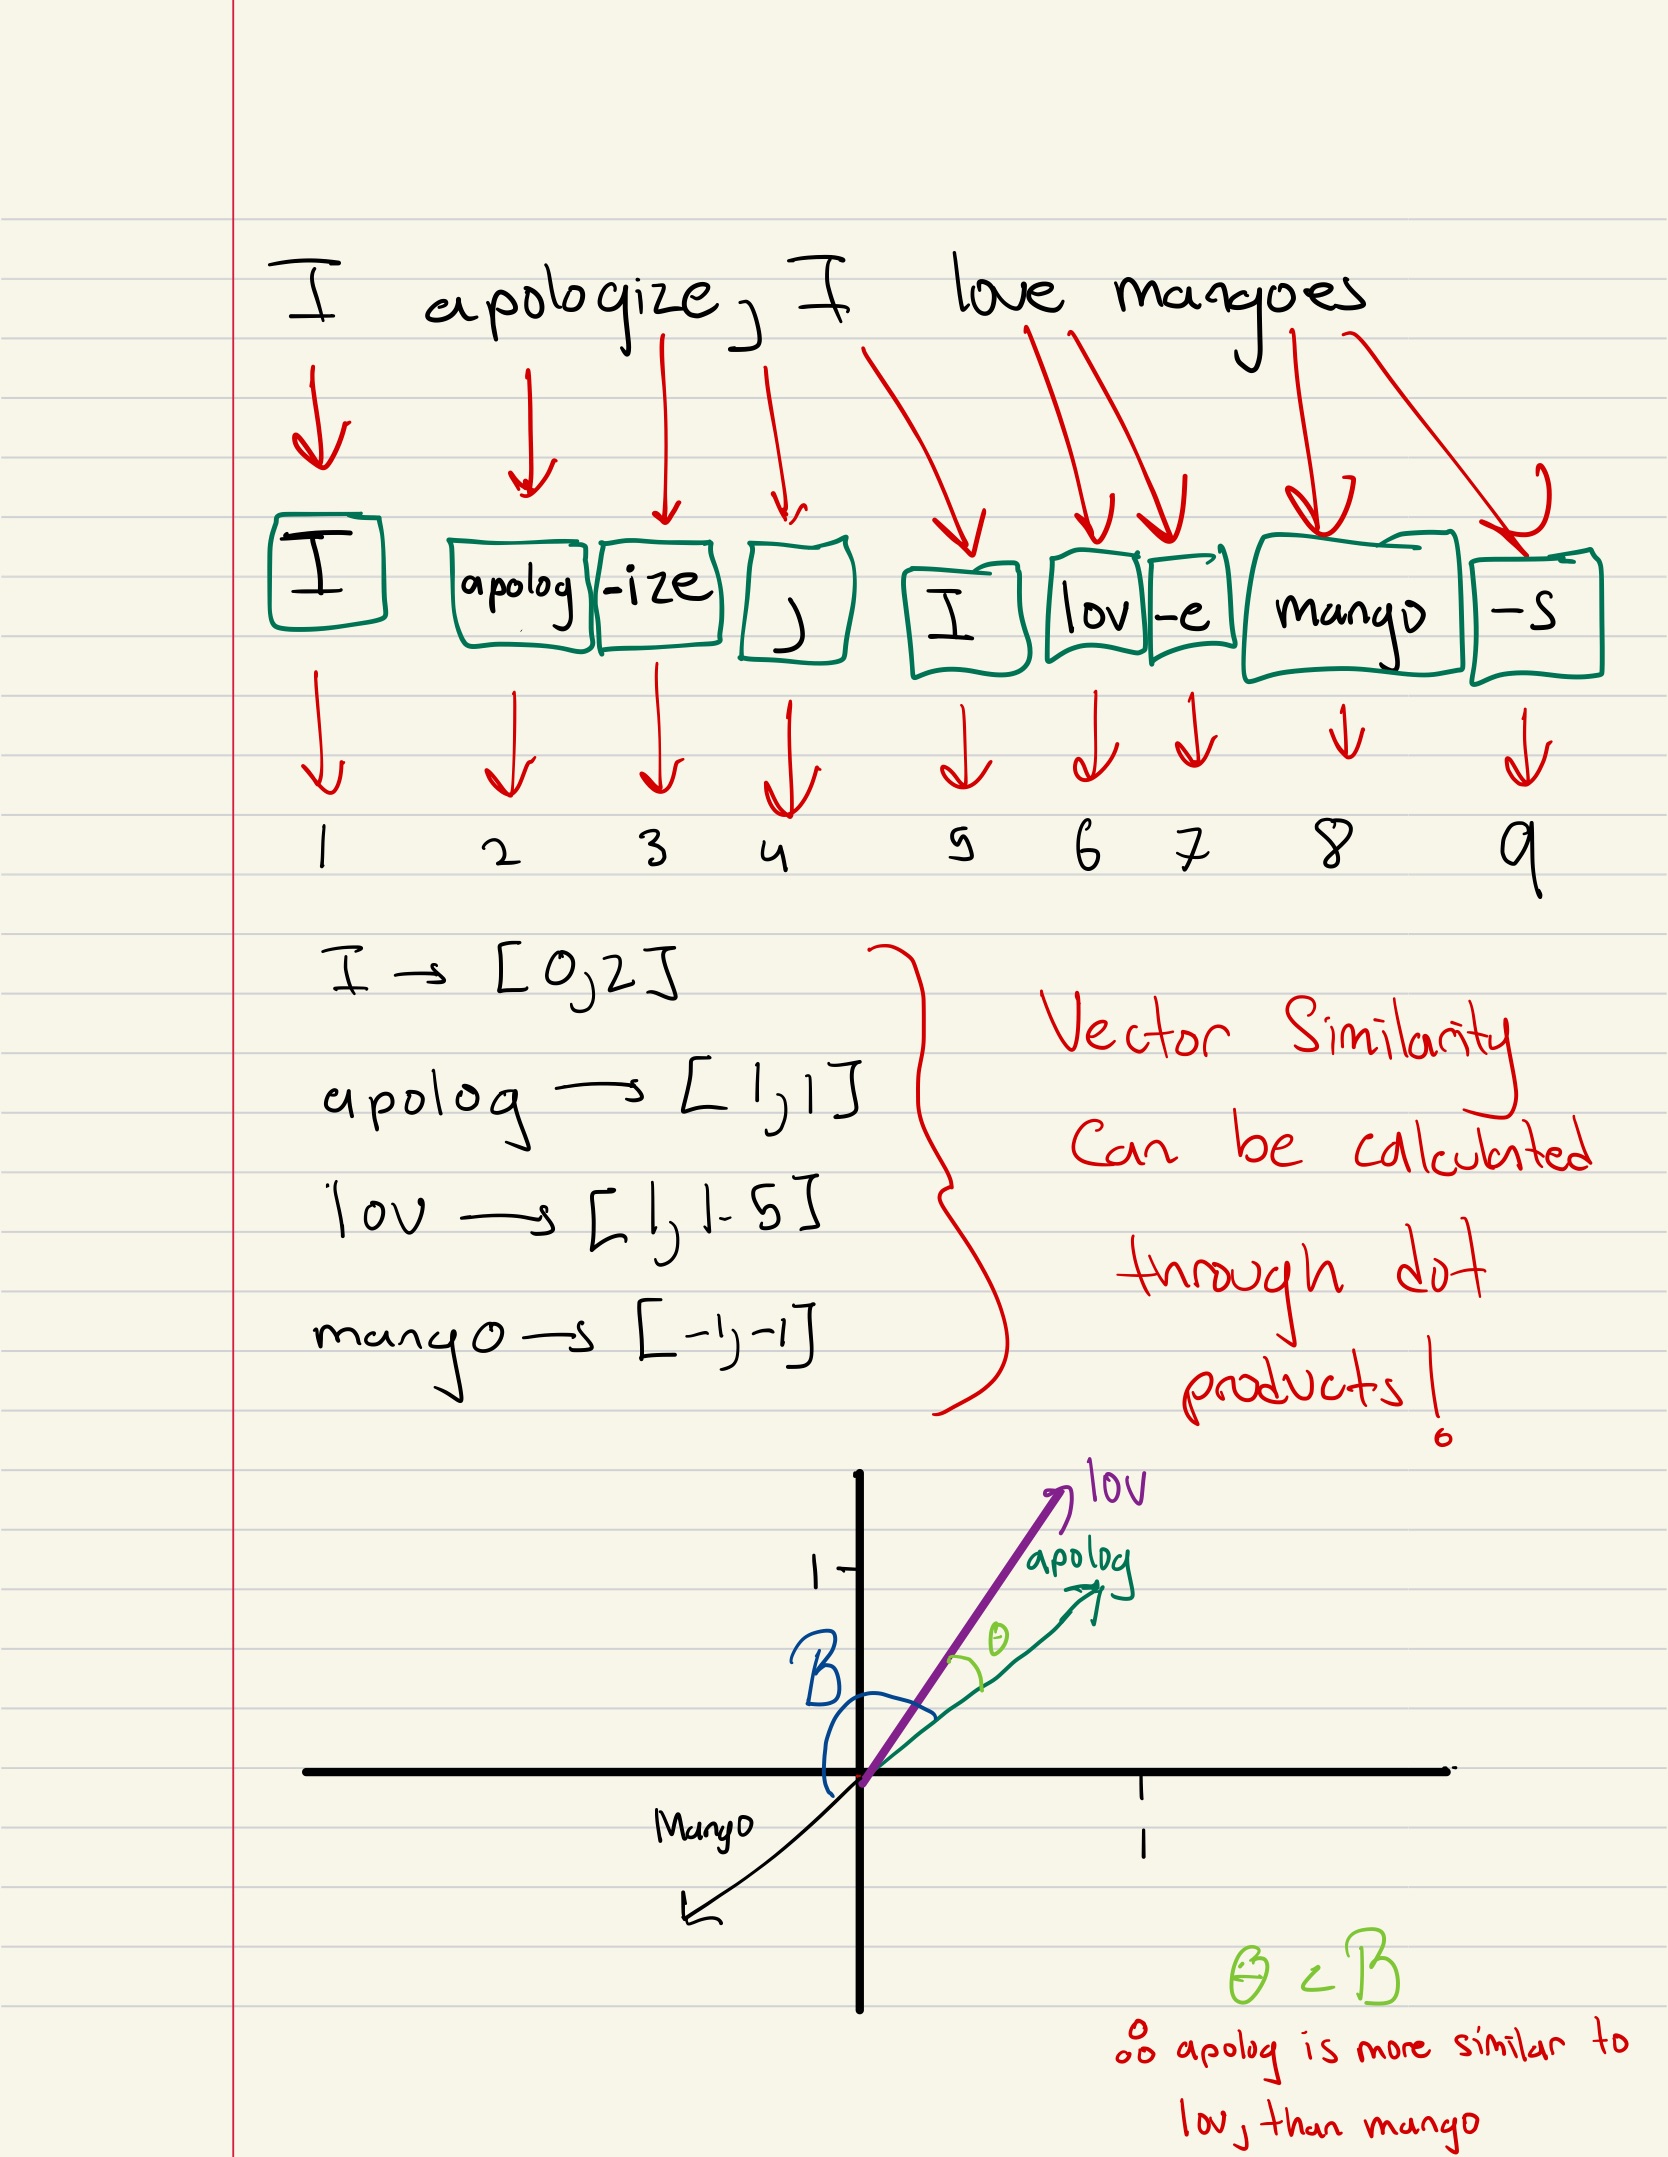 I apologize, I love mangoes
I apolog -ize , I lov -e mango -s
1 2 3 4 5 6 7 8 9
I → [0,2]
apolog → [1,1]
lov → [1,1.5]
mango → [-1,-1]
Vector Similarity
Can be calculated
through dot
products!
lov
apolog
1
θ
B
Mango
1
θ < B
∴ apolog is more similar to
lov, than mango